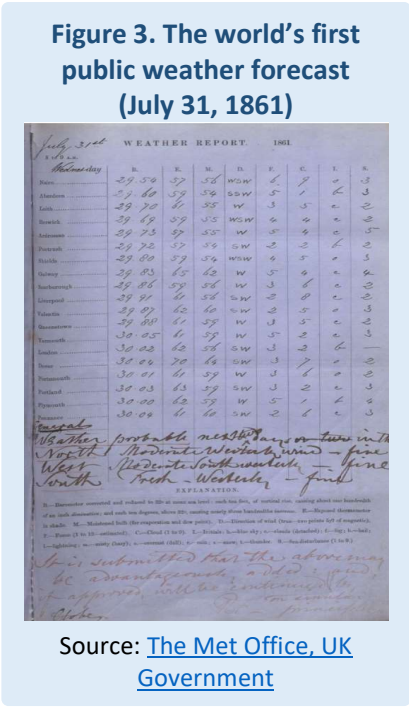 Figure 3. The world's first
public weather forecast
(July 31, 1861)
July 31st WEATHER REPORT. 1861.
Wednesday B. E. M. D. F. C. I. S.
Nairn 29.54 57 56 WSW 6 9 o 3
Aberdeen 29.60 59 54 SSW 5 1 b 3
Leith 29.70 61 55 W 3 5 c 2
Berwick 29.69 59 55 WSW 4 4 c 2
Ardrossan 29.73 57 55 W 5 4 c 5
Portrush 29.72 57 54 SW 2 2 b 2
Shields 29.80 59 54 WSW 4 5 o 3
Galway 29.83 65 62 W 5 4 c 4
Scarborough 29.86 59 56 W 3 6 c 2
Liverpool 29.91 61 56 SW 2 8 c 2
Valentia 29.87 62 60 SW 2 5 o 3
Queenstown 29.88 61 59 W 3 5 c 2
Yarmouth 30.05 61 59 W 5 2 c 3
London 30.02 62 56 SW 3 2 b —
Dover 30.04 70 64 SW 3 7 o 2
Portsmouth 30.01 61 59 W 3 6 o 2
Portland 30.03 63 59 SW 3 2 c 3
Plymouth 30.00 62 59 W 5 1 b 4
Penzance 30.04 61 60 SW 2 6 c 3
General
Weather probable next two days in the
North Moderate Westerly wind — fine
West Moderate South westerly — fine
South Fresh Westerly — fine
EXPLANATION.
It is submitted that the above may
be advantageously added and,
if approved, will be continued
Source: The Met Office, UK
Government